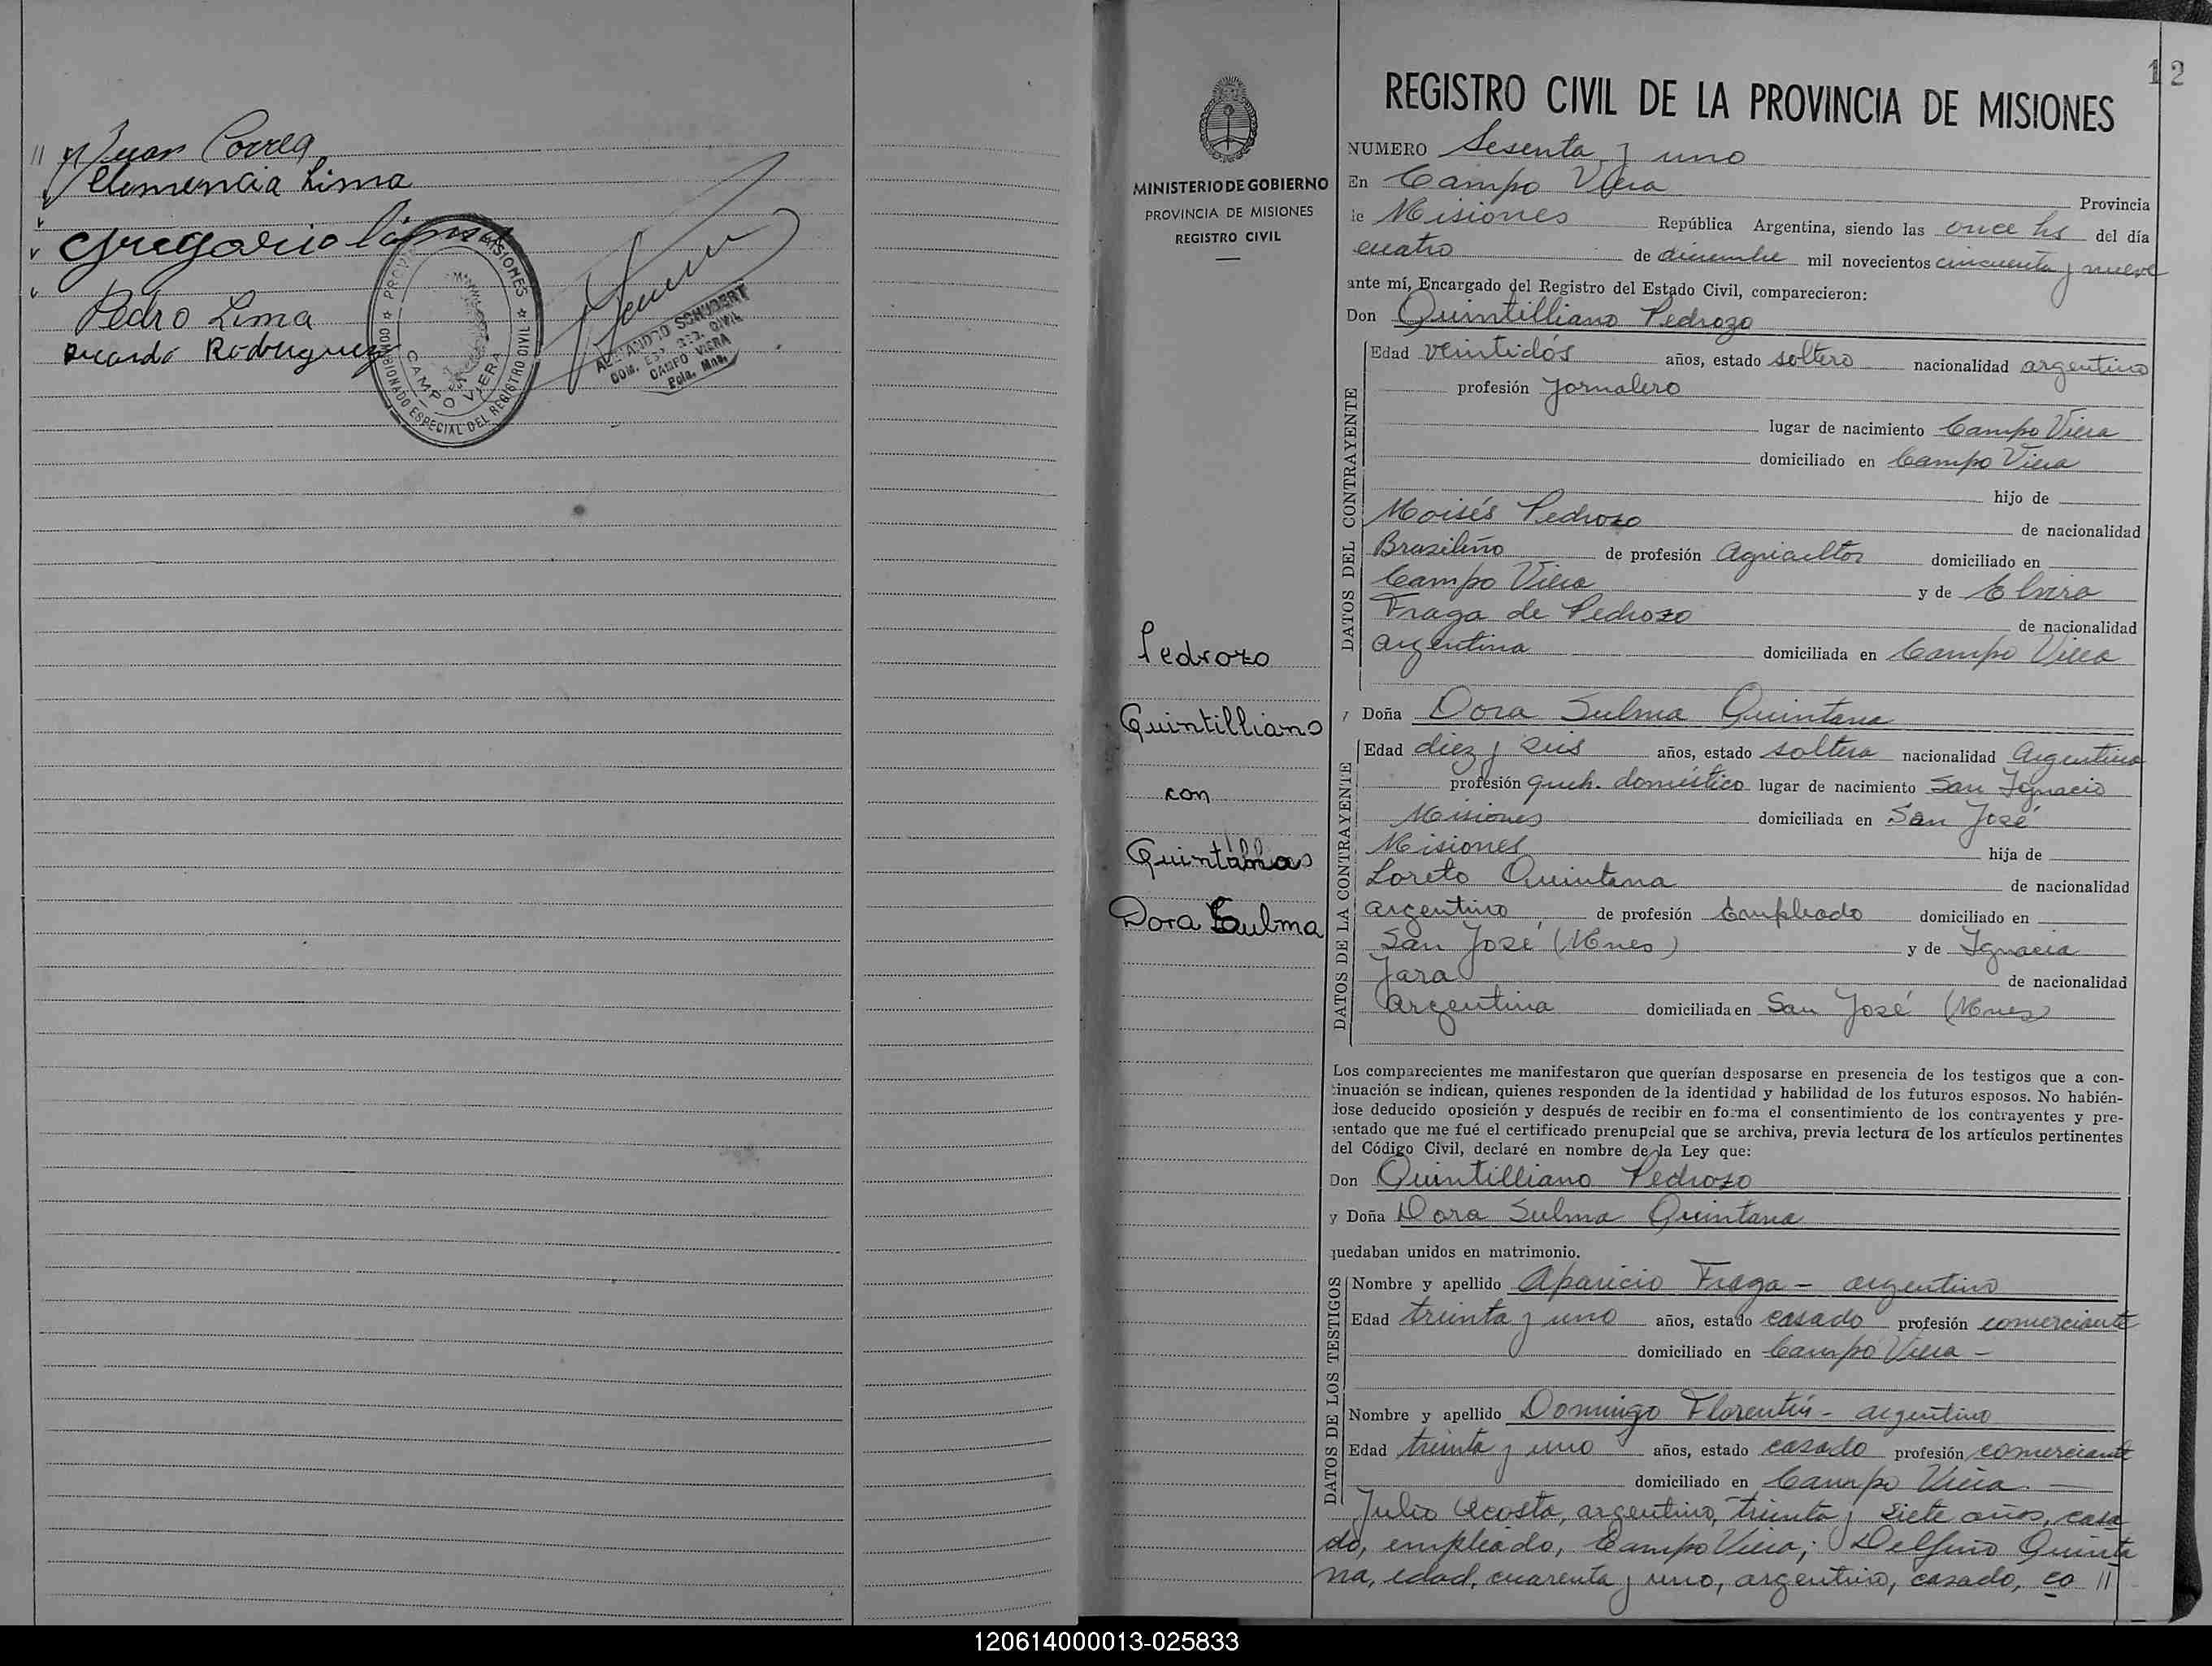 // Juan Correa
Clemencia Lima
Gregario Lima
Pedro Lima
Ricardo Rodriguez
PROVINCIA MISIONES
COMISIONADO ESPECIAL DEL REGISTRO CIVIL
CAMPO VIERA
ALEJANDRO SCHUBERT
COM. ESP. REG. CIVIL
CAMPO VIERA
Pcia. Mnes.
12
MINISTERIO DE GOBIERNO
PROVINCIA DE MISIONES
REGISTRO CIVIL
Pedrozo
Quintilliano
con
Quintana
Dora Sulma
REGISTRO CIVIL DE LA PROVINCIA DE MISIONES
NUMERO Sesenta y uno
En Campo Viera Provincia
de Misiones República Argentina, siendo las once hs del día
cuatro de diciembre mil novecientos cincuenta y nueve
ante mí, Encargado del Registro del Estado Civil, comparecieron:
Don Quintilliano Pedrozo
DATOS DEL CONTRAYENTE
Edad veintidós años, estado soltero nacionalidad argentino
profesión Jornalero
lugar de nacimiento Campo Viera
domiciliado en Campo Viera
hijo de
Moisés Pedrozo de nacionalidad
Brasileño de profesión Agricultor domiciliado en
Campo Viera y de Elvira
Fraga de Pedrozo de nacionalidad
argentina domiciliada en Campo Viera
y Doña Dora Sulma Quintana
DATOS DE LA CONTRAYENTE
Edad diez y seis años, estado soltera nacionalidad Argentina
profesión queh. doméstico lugar de nacimiento San Ignacio
Misiones domiciliada en San José
Misiones hija de
Loreto Quintana de nacionalidad
argentino de profesión Empleado domiciliado en
San José (Mnes) y de Ignacia
Jara de nacionalidad
argentina domiciliada en San José (Mnes)
Los comparecientes me manifestaron que querían desposarse en presencia de los testigos que a con-
tinuación se indican, quienes responden de la identidad y habilidad de los futuros esposos. No habién-
dose deducido oposición y después de recibir en forma el consentimiento de los contrayentes y pre-
sentado que me fué el certificado prenupcial que se archiva, previa lectura de los artículos pertinentes
del Código Civil, declaré en nombre de la Ley que:
Don Quintilliano Pedrozo
y Doña Dora Sulma Quintana
quedaban unidos en matrimonio.
DATOS DE LOS TESTIGOS
Nombre y apellido Aparicio Fraga - argentino
Edad treinta y uno años, estado casado profesión comerciante
domiciliado en Campo Viera -
Nombre y apellido Domingo Florentín - argentino
Edad treinta y uno años, estado casado profesión comerciante
domiciliado en Campo Viera. -
Julio Acosta, argentino, treinta y siete años, casa
do, empleado, Campo Viera; Delfino Quinta
na, edad, cuarenta y uno, argentino, casado, co //
120614000013-025833